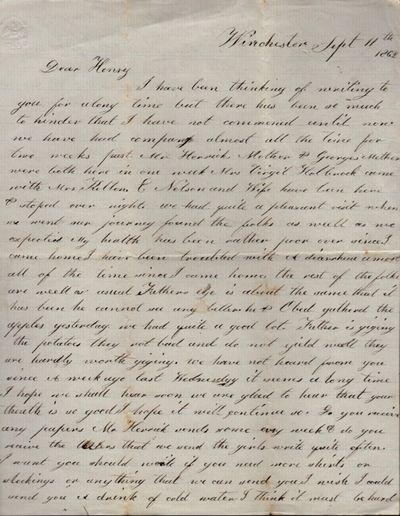 Winchester Sept 11th
1862
Dear Henry
I have been thinking of writing to
you for along time but there has been so much
to hinder that I have not commenced until now
we have had company almost all the time for
two weeks past. Mrs Herrick Mother & Georges Mother
were both here in one week Mrs Virgil Holbrook came
with Mrs E Nelson and Wife have been here
& stoped over night. we had quite a pleasant visit when
we went our journey found the folks as well as we
expected My health has been rather poor ever since I
came home I hair been troubled with A diarrhea almost
all of the time since I came home. the rest of the folks
are well as usual Fathers eye is about the same that it
has been he cannot see any better he & Chad gatherd the
apples yesterday we had quite a good lot. Father is giging
the potatoes they rot bad and do not yield well they
are hardly worth giging. we have not heard from you
since A week ago last Wednesday it seems a long time
I hope we shall hear soon we are glad to hear that your
health is so good I hope it will continue so. Do you receive
any papers Mr Herrick sends some evry week & do you
receive the letters that we send the girls write quite often.
I want you should write if you need more shirts or
stockings or anything that we can send you I wish I could
send you A drink of cold water I think it must be hard